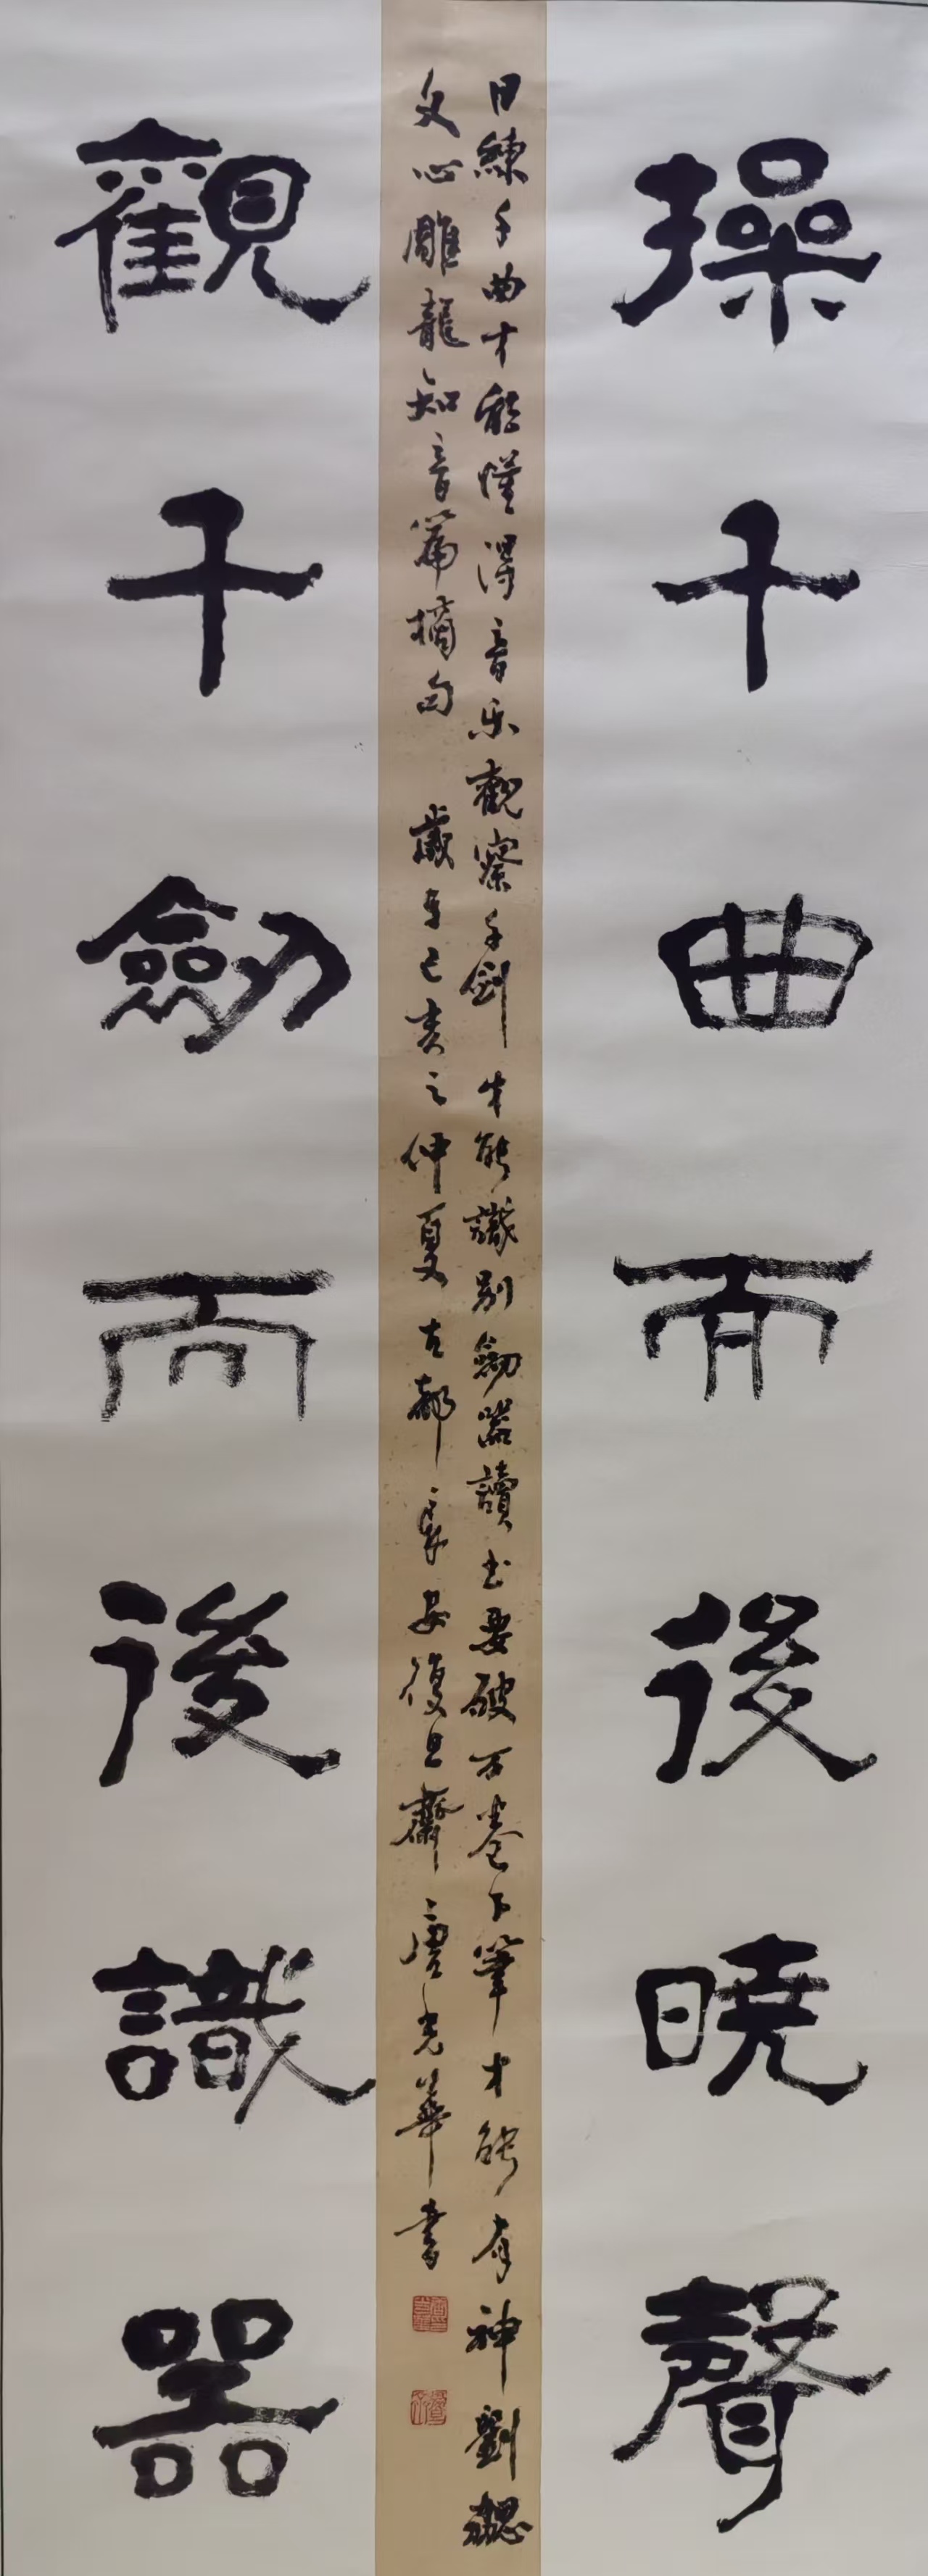 操千曲而後曉聲
日練千曲才能懂得音乐觀察千劍才能識別劒器讀书要破万卷下筆才能有神劉勰
文心雕龍知音篇摘句 歲在己亥之仲夏古都長安復旦齋唐光華書
觀千劒而後識器